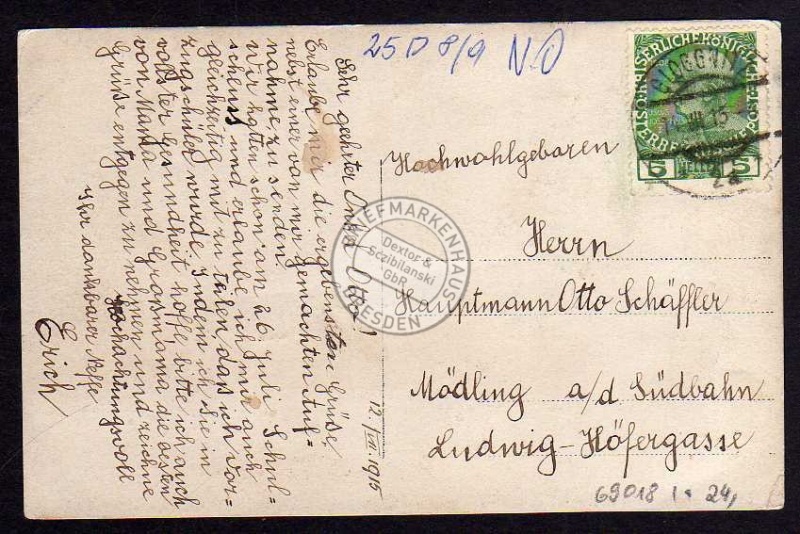 25 D 8/9 N.O
Sehr geehrter Onkel Otto!
Erlaube mir die ergebensten Grüße
nebst einer von mir gemachten Auf-
nahme zu senden.
Wir hatten schon am 26 Juli Schul-
schluss und erlaube ich mir auch
gleichzeitig mit zu teilen, das ich Vor-
zugschüler wurde. Indem ich Sie in
vollster Gesundheit hoffe, bitte ich auch
von Mama und Großmama die besten
Grüße entgegen zu nehmen und zeichne
Hochachtungsvoll
Ihr dankbarer Neffe
Erich
12/VII. 1915
Hochwohlgeboren
Herrn
Hauptmann Otto Schäffler
Mödling a/d Südbahn
Ludwig-Höfergasse
69018 1. 24,
GLOGGN
15
2a
5 5
BRIEFMARKENHAUS
Dextor &
Sczibilanski
GbR
DRESDEN